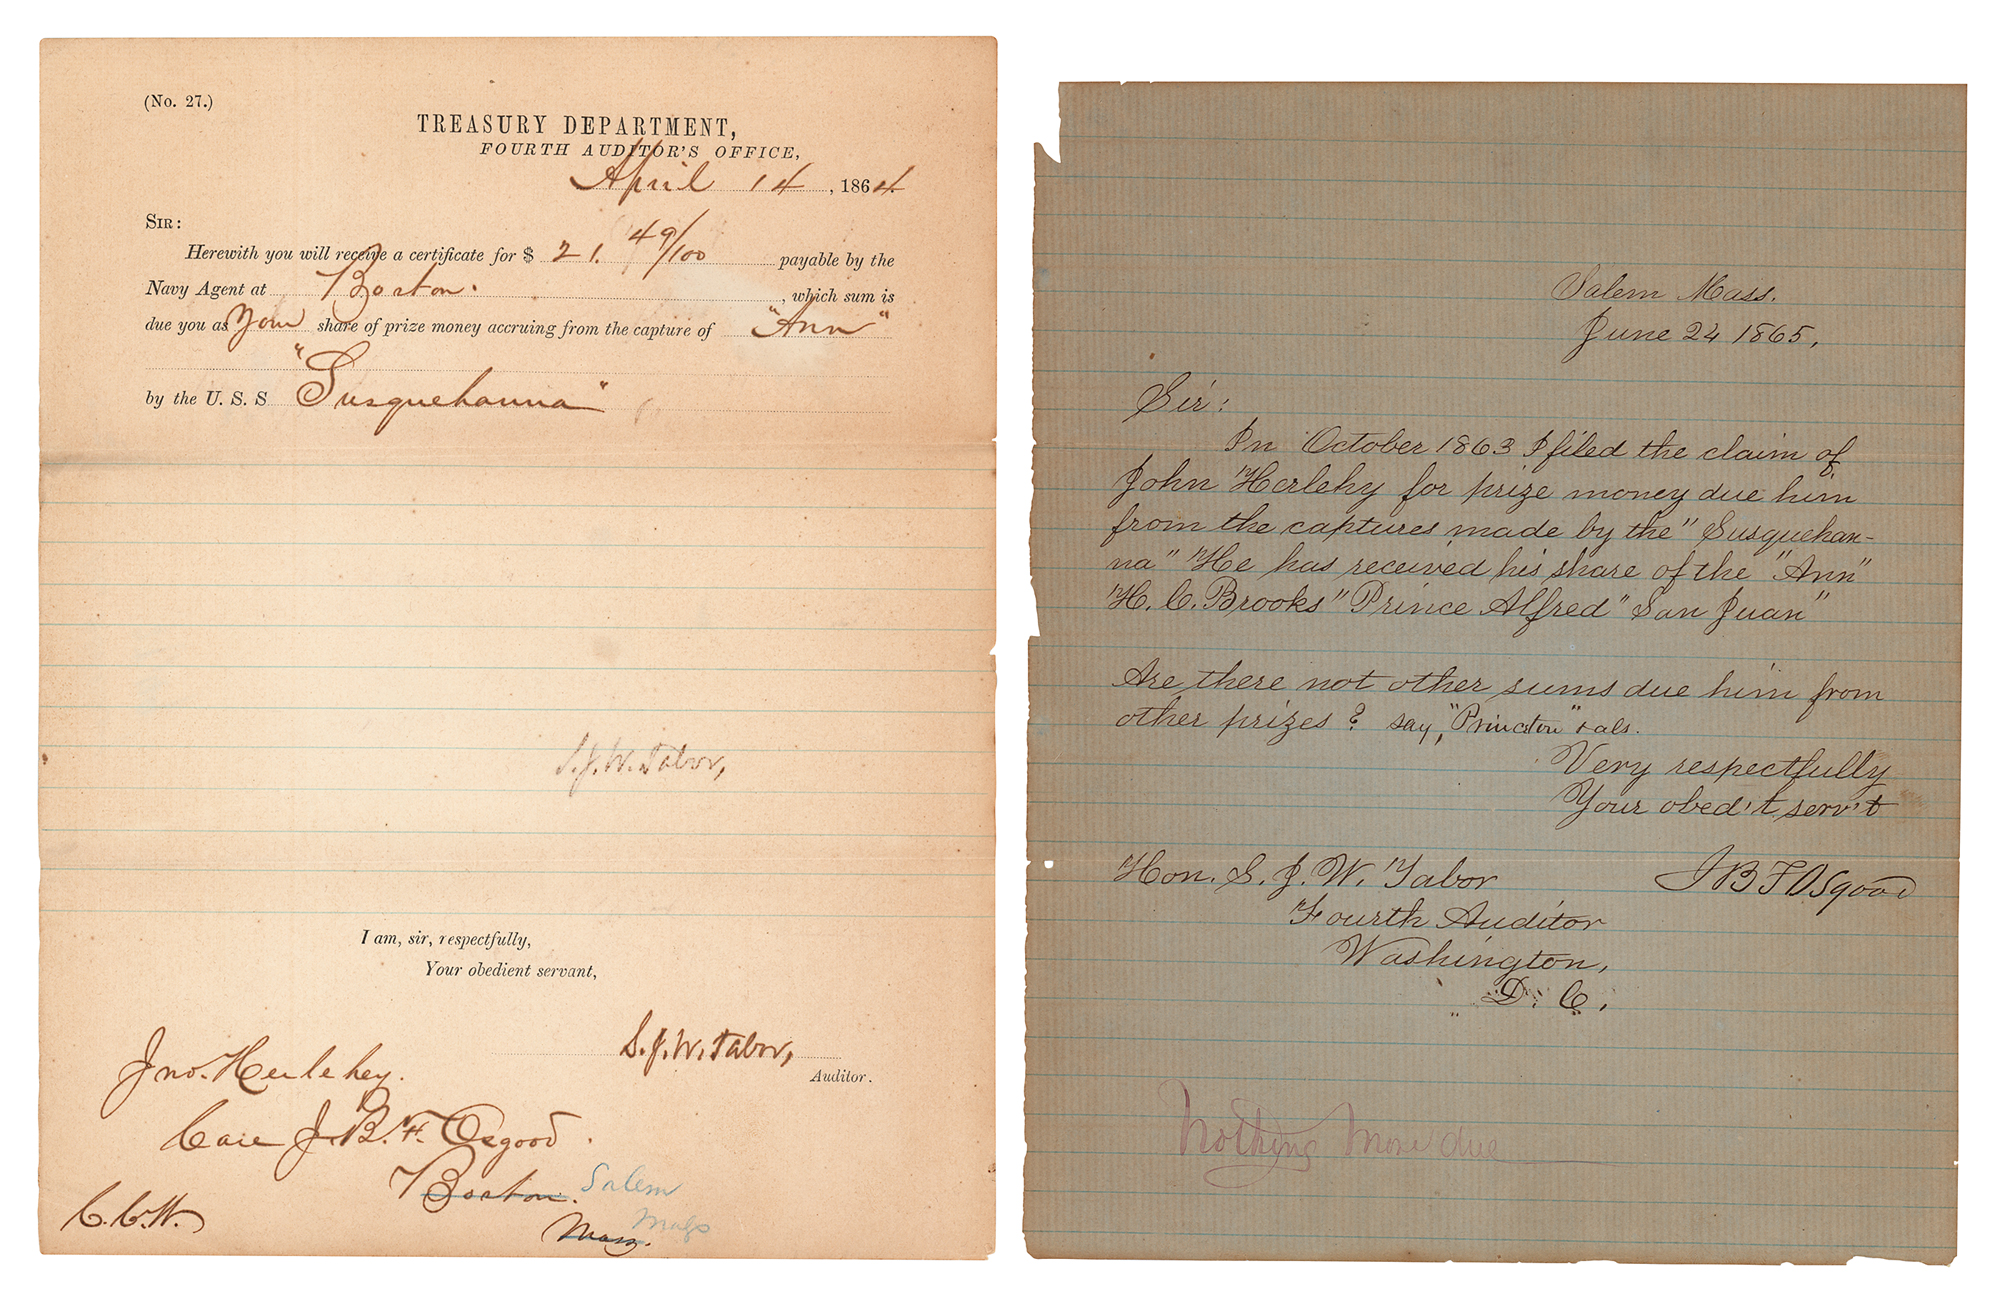 (No. 27.)
TREASURY DEPARTMENT,
FOURTH AUDITOR'S OFFICE,
April 14, 1864
SIR:
Herewith you will receive a certificate for $ 21. 49/100 payable by the
Navy Agent at Boston. , which sum is
due you as Your share of prize money accruing from the capture of "Ann"
by the U. S. S "Susquehanna"
S. J. W. Tabor,
I am, sir, respectfully,
Your obedient servant,
S. J. W. Tabor,
Auditor.
Jno. Herlehey.
Care J. B. F. Osgood.
Boston. Salem
Mass. Mass
C. C. W.
Salem Mass.
June 24 1865,
Sir:
In October 1863 I filed the claim of
John Herlehy for prize money due him
from the captures made by the "Susquehan-
na" He has received his share of the "Ann"
"H. C. Brooks" "Prince Alfred" "San Juan"
Are there not other sums due him from
other prizes? say, "Princeton" & als.
Very respectfully
Your obed't serv't
Hon. S. J. W. Tabor J B F Osgood
Fourth Auditor
Washington,
D. C.
Nothing More due